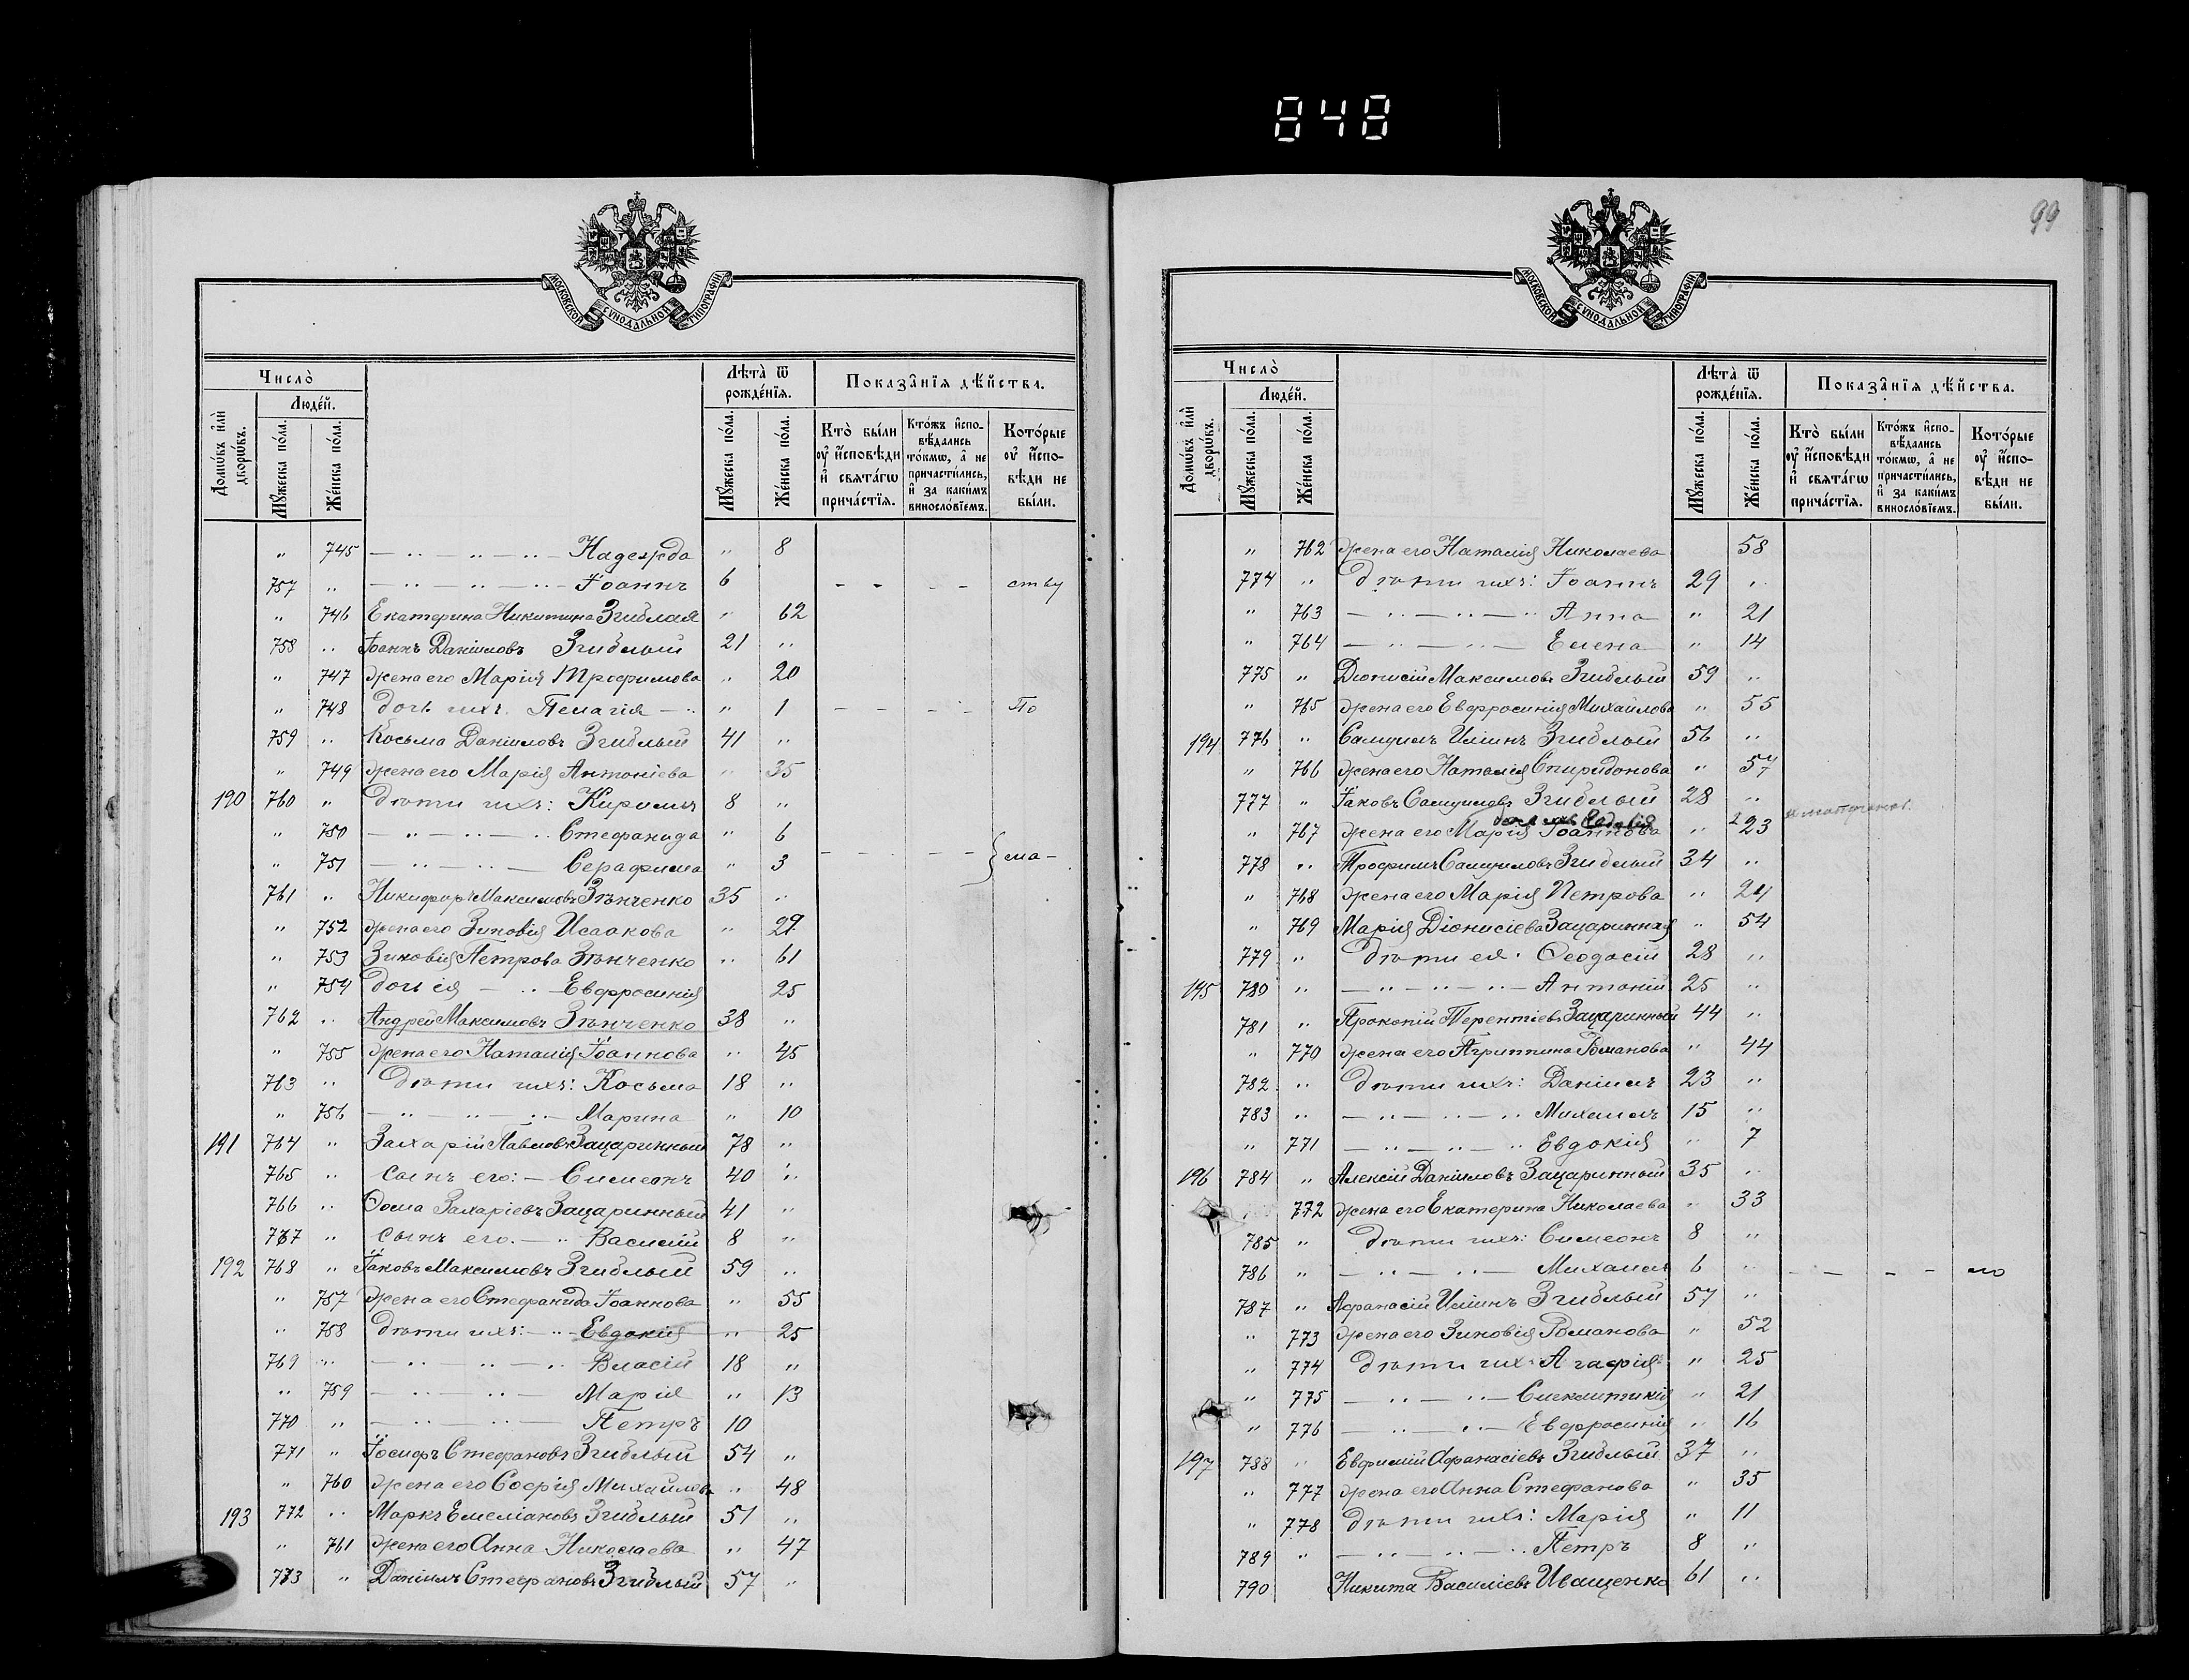 848
99
МОСКОВСКОЙ СУНОДАЛЬНОЙ ТИПОГРАФІИ
Число̀
Люде́й.
Домѡ́въ и҆лѝ дворѡ́въ.
Мꙋ́жеска по́ла.
Же́нска по́ла.
Лѣ́та ѿ рожде́нїѧ.
Мꙋ́жеска по́ла.
Же́нска по́ла.
Показа̑нїѧ дѣ́йства.
Кто̀ бы́ли ᲂу҆ и҆́сповѣди и҆ свѧта́гѡ прича́стїѧ.
Кто́жъ и҆спо-вѣ́дались то́кмѡ, а҆ не причасти́лись, и҆ за каки́мъ виносло́вїемъ.
Кото́рые ᲂу҆ и҆́спо-вѣди не бы́ли.
" 745 — " — " — " — Надежда " 8
757 " — " — " — " — Іоаннъ 6 - - - - ству
" 746 Екатерина Никитина Згиблая " 62
758 " Іоаннъ Даніиловъ Згиблый 21 "
" 747 жена его Марія Трофимова " 20
" 748 дочь ихъ Пелагія — " " 1 - - - - По
759 " Косьма Даніиловъ Згиблый 41 "
" 749 жена его Марія Антоніева " 35
190 760 " дѣти ихъ: Кириллъ 8 "
" 750 — " — " — " Стефанида " 6
" 751 — " — " — Серафима " 3 - - - - } ма-
761 " Никифоръ Максимовъ Зѣнченко 35 "
" 752 жена его Зиновія Исаакова " 29
" 753 Зиновія Петрова Зѣнченко " 61
" 754 дочь ея — " — Евфросинія 25
762 " Андрей Максимовъ Зѣнченко 38 "
" 755 жена его Наталія Іоаннова " 45
763 " дѣти ихъ: Косьма 18 "
" 756 — " — " — " — Марина " 10
191 764 " Захарій Павловъ Зацаринный 78 "
765 " сынъ его: — Симеонъ 40 "
766 " Ѳома Захаріевъ Зацаринный 41 "
767 " сынъ его. — " Василій 8 "
192 768 " Іаковъ Максимовъ Згиблый 59 "
" 757 жена его Стефанида Іоаннова " 55
" 758 дѣти ихъ: — " — Евдокія " 25
769 " — " — " — " Власій 18 "
" 759 — " — " — Марія " 13
770 " — " — " — Петръ 10
771 " Іосифъ Стефановъ Згиблый 54 "
" 760 жена его Софія Михайлова " 48
193 772 " Маркъ Емеліановъ Згиблый 51 "
" 761 жена его Анна Николаева " 47
773 " Даніилъ Стефановъ Згиблый 57 "
МОСКОВСКОЙ СУНОДАЛЬНОЙ ТИПОГРАФІИ
Число̀
Люде́й.
Домѡ́въ и҆лѝ дворѡ́въ.
Мꙋ́жеска по́ла.
Же́нска по́ла.
Лѣ́та ѿ рожде́нїѧ.
Мꙋ́жеска по́ла.
Же́нска по́ла.
Показа̑нїѧ дѣ́йства.
Кто̀ бы́ли ᲂу҆ и҆́сповѣди и҆ свѧта́гѡ прича́стїѧ.
Кто́жъ и҆спо-вѣ́дались то́кмѡ, а҆ не причасти́лись, и҆ за каки́мъ виносло́вїемъ.
Кото́рые ᲂу҆ и҆́спо-вѣди не бы́ли.
" 762 жена его Наталія Николаева 58
774 " дѣти ихъ: Іоаннъ 29 "
" 763 — " — " — " Анна " 21
" 764 — " — " — Елена " 14
775 " Діонисій Максимовъ Згиблый 59 "
" 765 жена его Евфросинія Михайлова " 55
194 776 " Самуилъ Иліинъ Згиблый 56 "
" 766 жена его Наталія Спиридонова " 57
777 " Іаковъ Самуиловъ Згиблый 28 "
дочь ихъ
" 767 жена его Марія Іоаннова " 23
778 " Трофимъ Самуиловъ Згиблый 34 "
" 768 жена его Марія Петрова " 24
" 769 Марія Діонисіева Зацаринная " 54
779 " дѣти ея: Ѳеодосій 28 "
195 780 " — " — " — " — Антоній 25 "
781 " Прокопій Терентіевъ Зацаринный 44 "
" 770 жена его Агриппина Романова " 44
782 " дѣти ихъ: Даніилъ 23 "
783 " — " — " — " Михаилъ 15 "
" 771 — " — " — " Евдокія " 7
196 784 " Алексій Даніиловъ Зацаринный 35 "
772 жена его Екатерина Николаева " 33
785 " дѣти ихъ: Симеонъ 8 "
786 " — " — " — Михаилъ 6 " - - - - ло
787 " Афанасій Иліинъ Згиблый 57 "
" 773 жена его Зиновія Романова " 52
" 774 дѣти ихъ: Агафія " 25
" 775 — " — " — Сигклитикія " 21
" 776 — " — " — Евфросинія " 16
197 788 " Евфимій Афанасіевъ Згиблый 37 "
" 777 жена его Анна Стефанова " 35
" 778 дѣти ихъ: Марія " 11
789 " — " — " — " Петръ 8 "
790 Никита Василіевъ Иващенко 61 "